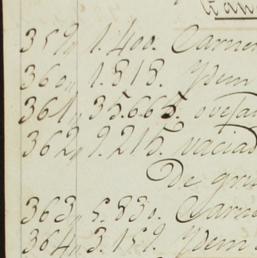 359, 1.400. Carner
360, 1.818. Ydem
361, 35.665. ovejas
362, 9.215. vacias
De gru
363, 5.830. Carne
364, 3.159. Ydem